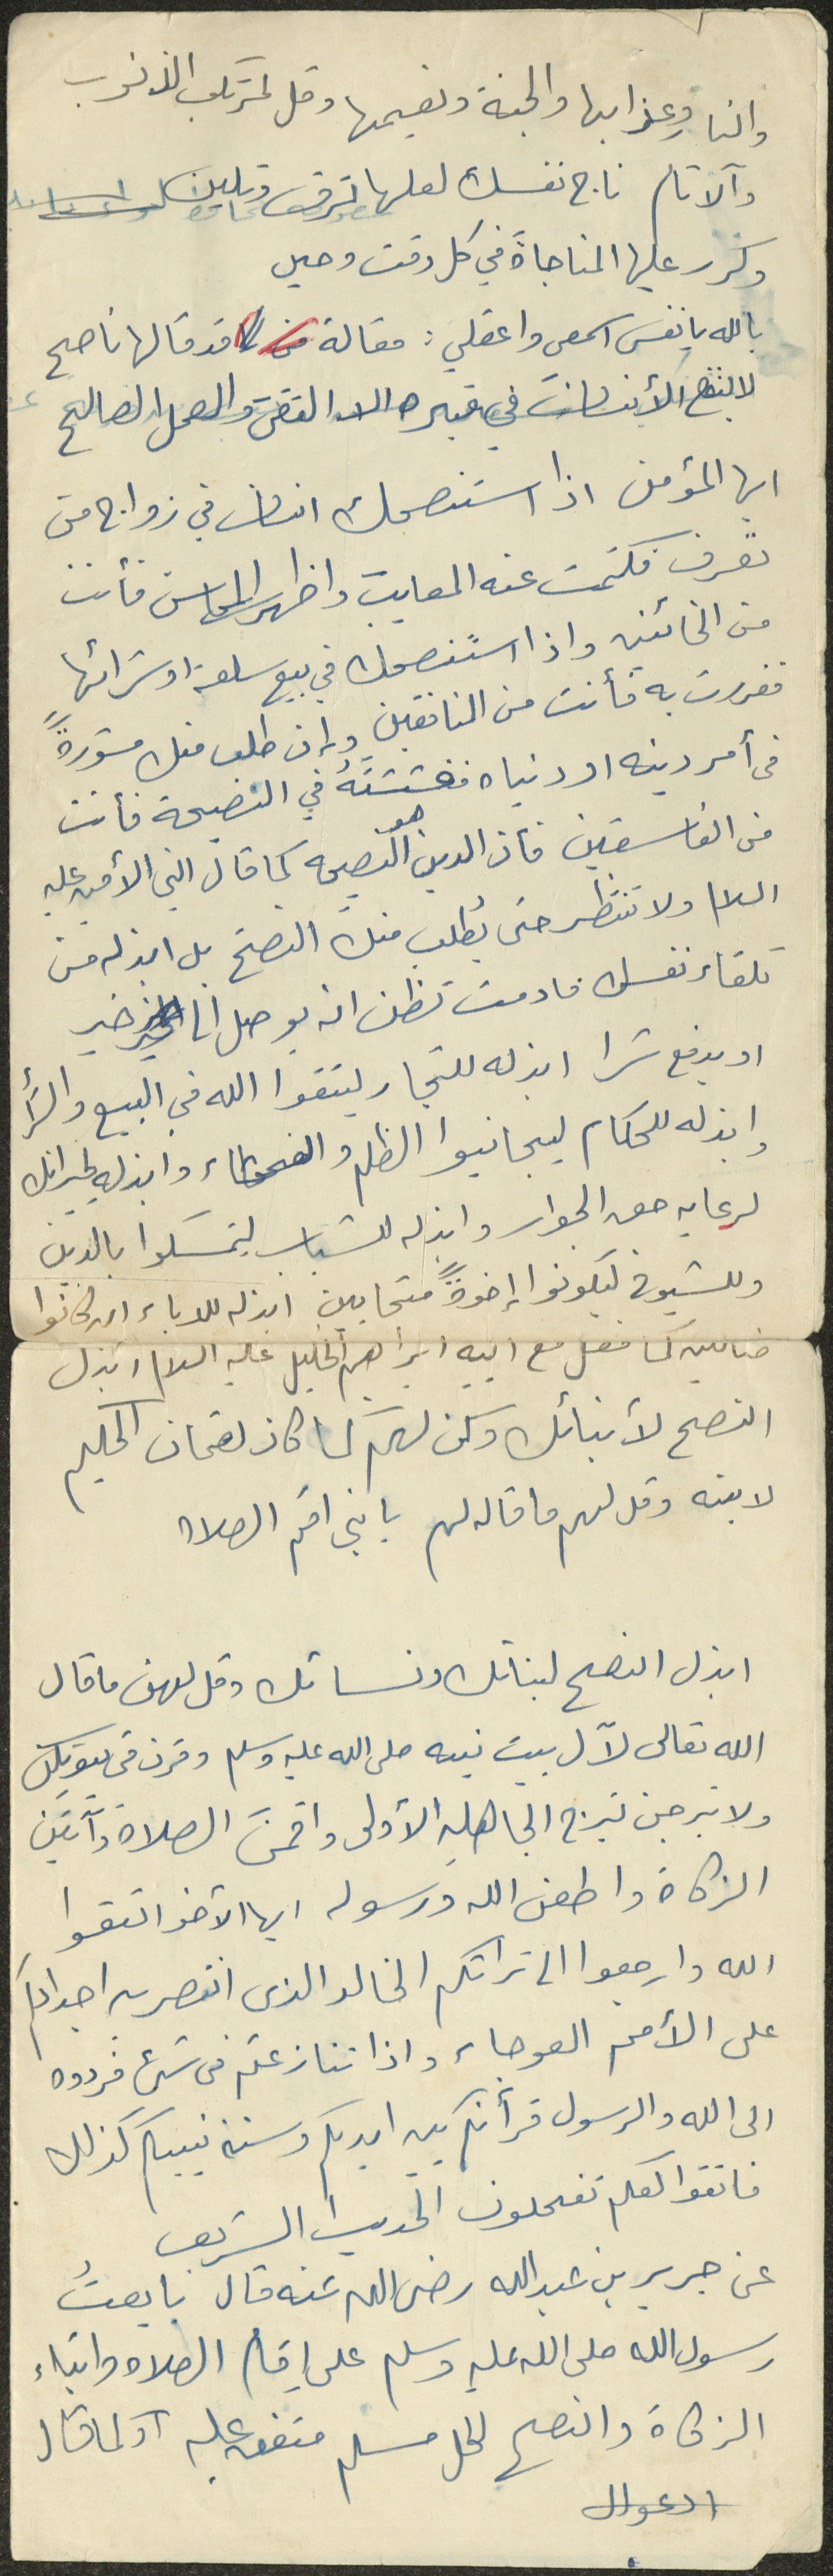 والنار وعذابها والجنة ونعيمها وقل لمرتكب الذنوب
وآلاثام ناج نفسك لعلها ترق وتلين
وكرر عليها المناجاة في كل وقت وحين
بالله يا نفس اسمعي واعقلي : مقالة قد قالها ناصح
لا ينفع الأنسان في قبره الا التقى والعمل الصالح
ايها المؤمن اذا استنصحك انسان في زواج من
تعرف فكتمت عنه المعايب واظهر المحاسن فأنت
من الخائنين واذا استنصحك في بيع سلعة او شرائها
فغررت به فأنت من المنافقين وإن طلب منك مشورةً
في أمر دينه او دنياه فغششتهُ في النصيحة فأنت
من الفاسقين فأن الدين هو النصيحه كما قال النبي الأمين عليه
السلام ولا تنتظر حتى يُطلب منك النصح بل ابذله من
تلقاء نفسك مادمت تظن انه يوصل الى خير
او يدفع شرا ابذله للتجار ليتقوا الله في البيع والشرأ
وابذله للحكام ليجانبوا الظلم والفحشاء وابذله لجيرانك
لرعايه حق الجوار وابذله للشباب ليتمسكوا بالدين
وللشيوخ ليكونوا إخوةً متحابين ابذله للاباء ان كانوا
ضالين كما فعل مع ابيه ابراهيم الخليل عليه السلام ابذل
النصح لأبنائك وكن لهم كما كان لقمان الحكيم
لابنه وقل لهم ما قاله لهم يا بني اقم الصلاة
ابذل النصح لبناتك ونسائك وقل لهن ما قال
الله تعالى لآل بيت نبيه صلى الله عليه وسلم وقرن في بيوتكن
ولا تبرجن تبرج الجاهليه الأولى واقمن الصلاة وآتين
الزكاة واطعن الله ورسوله ايها الأخو اتقوا
الله وارجعوا الى تراثكم الخالد الذي انتصر به اجدادكم
على الأمم العوجاء واذا تنازعتم في شئ فردوه
الى الله والرسول قرأنكم بين ايديكم وسنة نبيكم كذلك
فاتقوا لعلكم تفلحون الحديث الشريف
عن جرير بن عبد الله رضي الله عنه قال بايعتُ
رسول الله صلى الله عليه وسلم على إقام الصلاه وايتاء
الزكاة والنصح لكل مسلم متفق عليه او كما قال
ادعوا الله